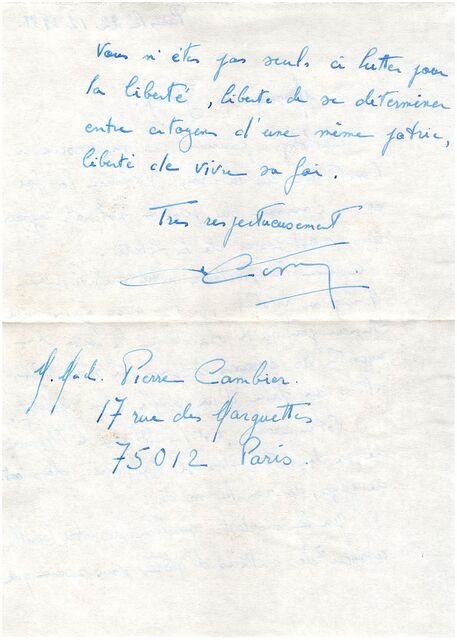 Vous n'êtes pas seuls à lutter pour
la liberté, liberté de se déterminer
entre citoyens d'une même patrie,
liberté de vivre sa foi.
Très respectueusement
M. Mad. Pierre Cambier.
17 rue des Marguettes
75012 Paris.